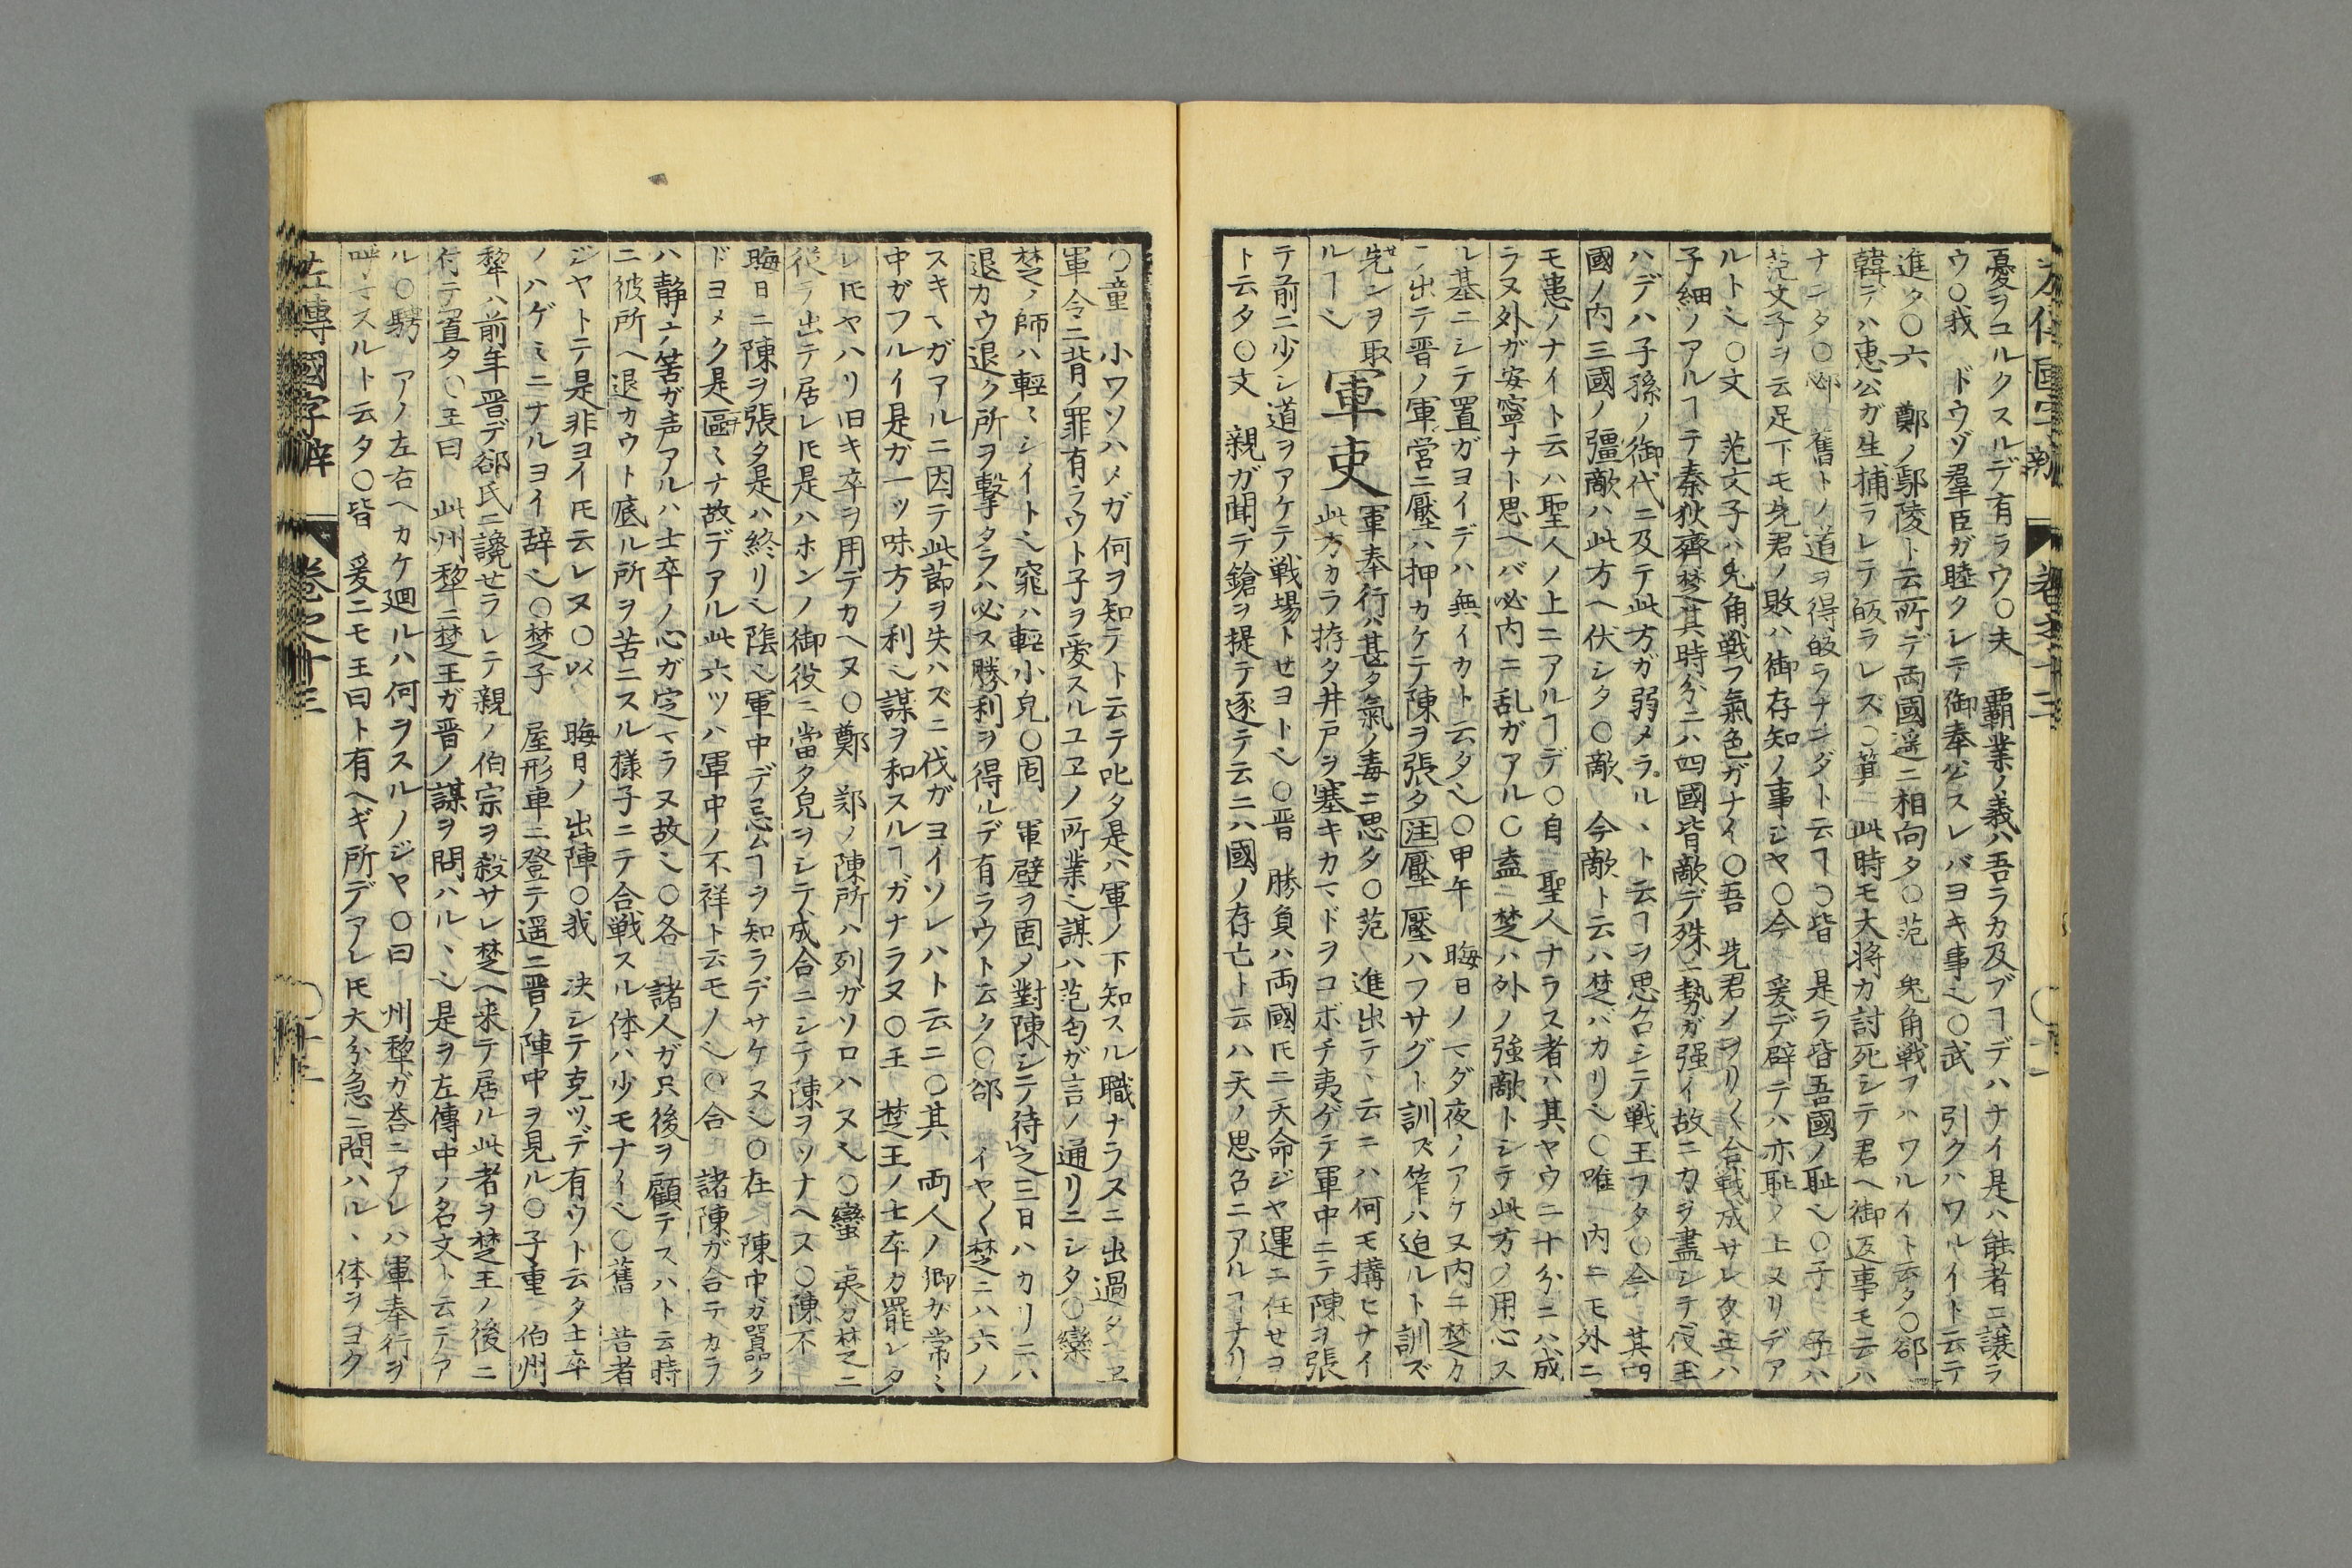 憂ヲコルクスルデ有ラウ○夫 覇業ノ義ハ吾ラカ及ブヿデハナイ是ハ能者ニ譲ラ
ウ○我 ドウゾ羣臣ガ睦クシテ御奉公スレバヨキ事也○武 引クハワルイト云テ
進タ○六 鄭ノ鄢陵ト云所デ両國遥ニ相向タ○范 兎角戦フハワルイト云タ○郤
韓テハ恵公ガ生捕ラレテ皈ラレズ○箕 此時モ大将カ討死シテ君ヘ御返事モ云ハ
ナンタ○邲 舊トノ道ヲ得皈ラナンダト云ヿ○皆 是ラ皆吾國ノ耻也○子 子ハ
范文子ヲ云足下モ先君ノ敗ハ御存知ノ事シヤ○今 爰デ辟テハ亦耻ノ上ヌリデア
ルト也○文 范文子ハ兎角戦フ氣色ガナイ○吾 先君ノヲリ〱合戦成サレタ
子細ノアルヿテ秦狄齊楚其時分ニハ四國皆敵デ殊ニ勢ガ强イ故ニカヲ盡シテ
ハデハ子孫ノ御代ニ及テ此方ガ弱メラルヽト云ヿヲ思召シテ戦王フタ○今 其四
國ノ内三國ノ彊敵ハ此方ヘ伏シタ○敵 今敵ト云ハ楚バカリ也○唯 内ニモ外ニ
モ患ノナイト云ハ聖人ノ上ニアルヿデ○自 聖人ナラス者ハ其ヤウニ十分ニハ成
ラヌ外ガ安寧ナト思ヘバ必内ニ乱ガアル○盍 楚ハ外ノ強敵トシテ此方ノ用心ス
ル基ニシテ置ガヨイデハ無イカト云タ也○甲午 晦日ノマダ夜ノアケヌ内ニ楚カ
ラ出テ晋ノ軍営ニ壓ハ押カケテ陳ヲ張タ注壓 壓ハフサグト訓ズ笮ハ迫ルト訓ズ
先ンヲ取ルヿ也 軍吏 軍奉行ハ甚タ氣ノ毒ニ思タ○范 進出テ云ニハ何モ搆ヒナイ
此方カラ拵タ井戸ヲ塞キカマドヲコボチ夷ゲテ軍中ニテ陳ヲ張
テ前ニ少シ道ヲアケテ戦場トセヨト也○晋 勝負ハ両國𪜈ニ天命ジヤ運ニ任セヨ
ト云タ○文 親ガ聞テ鎗ヲ提テ逐テ云ニハ國ノ存亡ト云ハ天ノ思召ニアルヿナリ
○童 小ワソハメガ何ヲ知テト云テ叱タ是ハ軍ノ下知スル職ナラスニ出過タ
軍令ニ背ノ罪有ラウト子ヲ愛スルユヱノ所業也謀ハ范匄ガ言ノ通リニシタ○欒
楚ノ師ハ輕々シイト也窕ハ輕小皃○固 軍壁ヲ固ノ對陳シテ待之三日ハカリニハ
退カウ退ク所ヲ擊タラハ必ス勝利ヲ得ルデ有ラウト云ク○郤 イヤ〱楚ニハ六ノ
スキヘガアルニ因テ此節ヲ失ハズニ伐ガヨイソレハト云ニ○其 両人ノ卿ガ常ニ
中ガフルイ是ガ一ッ味方ノ利也謀ヲ和スルヿガナラヌ○王 楚王ノ士卒カ罷レタ
レ𪜈ヤハリ旧キ卒ヲ用デカヘヌ○鄭 鄭ノ陳所ハ列ガソロハヌ也○蠻 夷ガ楚ニ
従ラ出テ居レ𪜈是ハホンノ御役ニ當タ皃ヲシテ成合ニシテ陳ヲツナヘス○陳不
晦日ニ陳ヲ張タ是ハ終リ也陰也軍中デ忌ムヿヲ知ラデサケヌ也○在 陳中ガ囂ク
ドヨメク是區ミナ故デアル此六ツハ軍中ノ不祥ト云モノ也○合 諸陳ガ合テカラ
ハ静ヱノ筈ガ声アルハ士卒ノ心ガ定マラヌ故也○各 諸人ガ只後ヲ顧テスハト云時
ニ彼所ヘ退カウト底ル所ヲ苦ニスル様子ニテ合戦スル体ハ少モナイ也○舊 昔者
ジヤトニテ是非ヨイ𪜈云レヌ○以 晦日ノ出陣○我 決シテ克ツデ有ウト云タ士卒
ノハゲミニナルヨイ辞也○楚子 屋形車ニ登テ遥ニ晋ノ陣中ヲ見ル○子重 伯州
犂ハ前年晋デ郤氏ニ讒セラレテ親ノ伯宗ヲ殺サレ楚ヘ来テ居ル此者ヲ楚王ノ後ニ
付テ置タ○王曰 此州犂ニ楚王ガ晋ノ謀ヲ問ハルヽ也是ヲ左傳中ノ名文ト云テア
ル○騁 アノ左右ヘカケ廻ルハ何ヲスルノジヤ○曰 州犂ガ荅ニアレハ軍奉行ヲ
呼マスルト云タ○皆 爰ニモ王曰ト有ヘギ所デアレ𪜈大分急ニ問ハルヽ体ヲヨク
左傳國字辯 卷之十三